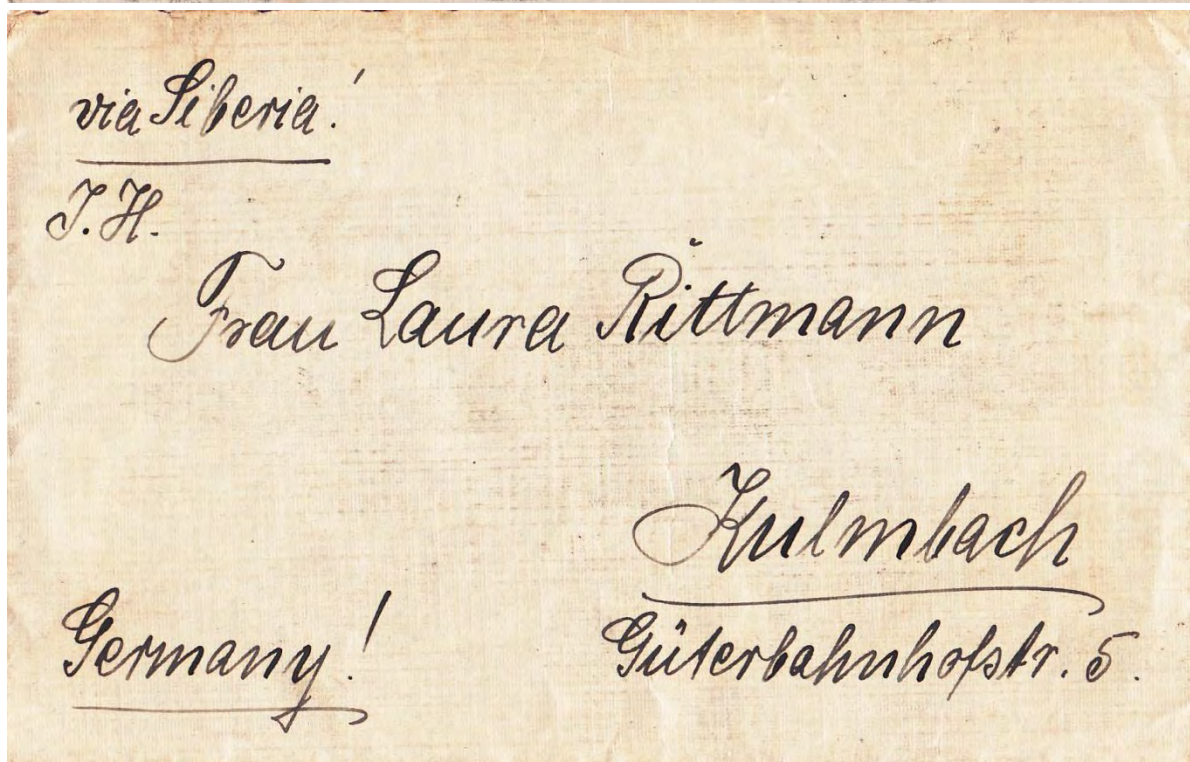 via Siberia!
J. H.
Frau Laura Rittmann
Kulmbach
Germany!
Güterbahnhofstr. 5.